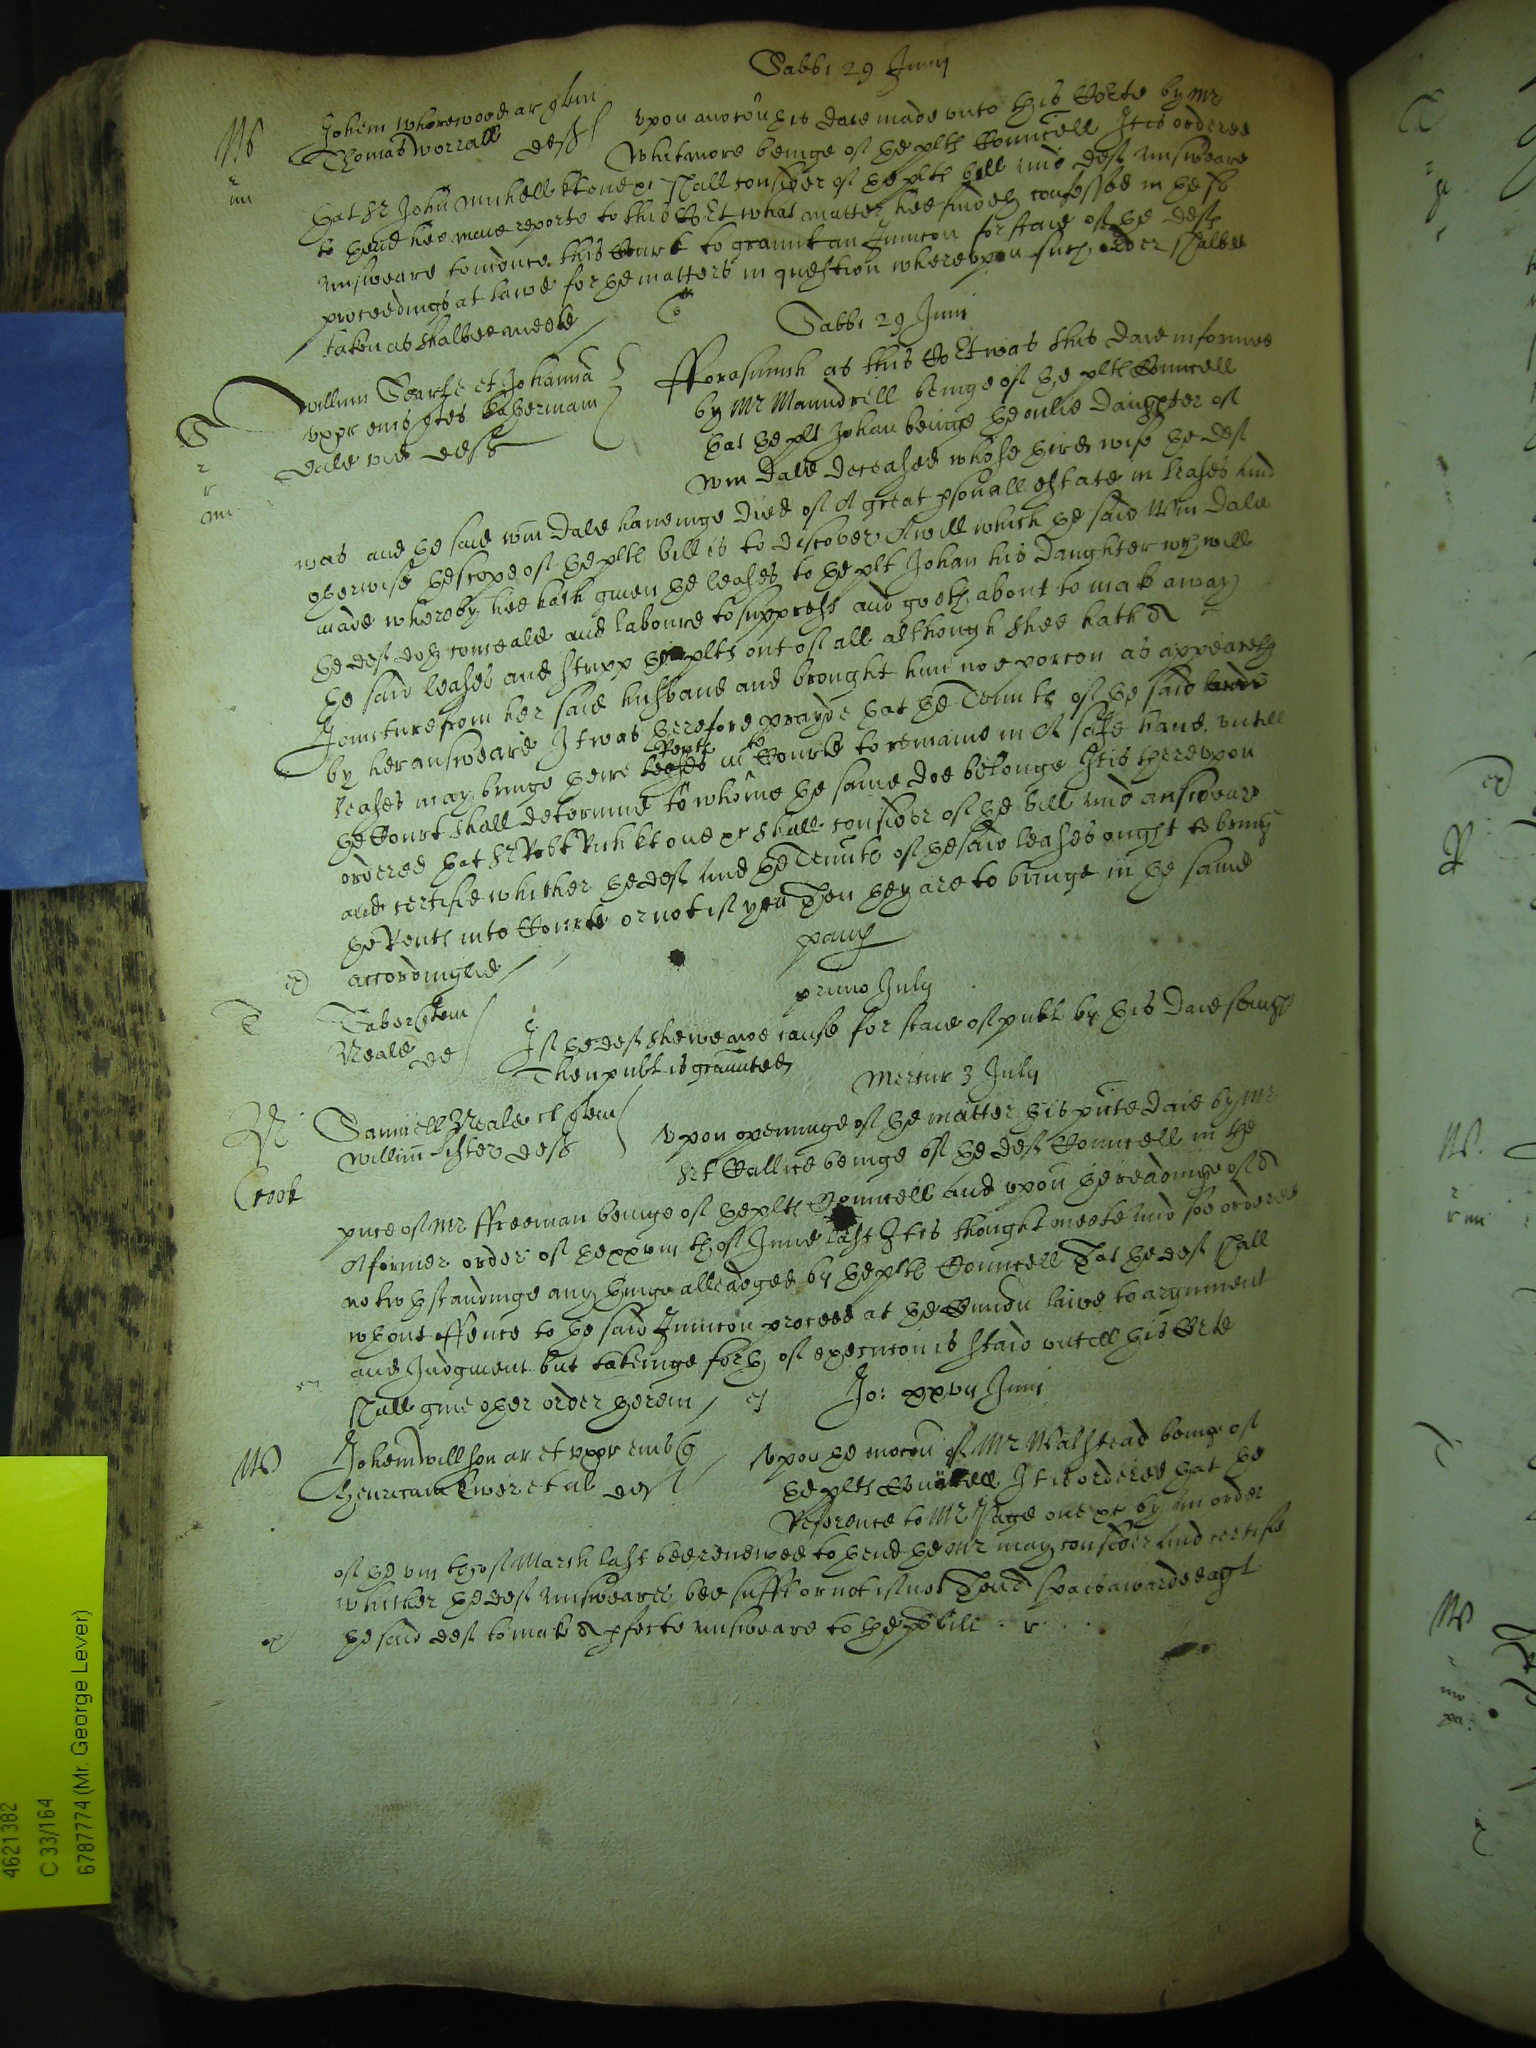 Sabbi 29 Junij
Johem Whorewood ar quer
Thomas Worrall def
upon motion this daie made unto this Corte by Mr
Whitmore beinge of the plts Councell It is ordered
that Sr John Michell kt one &c shall consider of the plts bill and def answeare
to thend hee maie reporte to this Cort what matter hee findeth confessed in the sd
answeare to move this Court to graunt an Iniuncon for staie of the defts
proceedings at lawe for the matters in question whereupon such order shalbe
taken as shalbee meete
Sabbi 29 Junij
Willum Searle et Johanna
uxor eius quer Katherinam
Dale vid def
Fforasmuch as this Cort was this daie informed
by Mr Maundrell beinge of the plts Councell
that the plt Johan beinge the onlie daughter of
Wm Dale deceased whose third wife the def
was and the said Wm Dale haveinge died of A great psonall estate in leases and
otherwise the scope of the plts bill is to discover A will which the said Wm Dale
made whereby hee hath given the leases to the plt Johan his daughter wch will
the def doth conceale and laboure to suppresse and goeth about to make away
the said leases and stripp the plts out of all although shee hath a
Joincture from her said husband and brought him noe porcon as appeareth
by her answeare It was therefore prayde that the Tennts of the said
leases may bringe theire leases Rents into Courte to remaine in A safe hand untill
the Court shall determine to whome the same doe belonge It is thereupon
ordered that Sr Robt Rich kt one &c shall consider of the bill and answeare
and certifie whether the def and the Tennts of the said leases ought to bring
the Rents into Courte or not if yea Then they are to bringe in the same
accordinglie
primo July
Taber quer
Neale def
If the def shewe noe cause for staie of publ by this daie sevnight
Then publ is graunted
Mercur 3 July
Samuell Neale cl quer
Willim Lister def
Crook
Upon openinge of the matter this pnte daie by Mr
Srt being of the def Councell in the
pnce of Mr Ffreeman beinge of the plts Councell and upon the readinge of
A former order of the xxviii th of June last It is thought meete and soe ordered
notwthstandinge any thinge alleadged by the plts Councell That the def shall
wthout offence to the said Iniuncon proceed at the Comon lawe to argument
and Judgment but takeinge forth of execucon is staid untill this Corte
shall give other order therein
Jo: xxvii Junij
Johem Willson ar et uxor eius quer
Henricum et al def
Upon the mocon of Mr Walstead beinge of
the plts Councell It is ordered that the
Reference to Mr Page one &c by an order
of the viii th of March last bee renewed to thend the Mr may consider and certifie
whether the def answeare bee sufft or not if not Then spa is awarded agt
the said def to make a pfecte answeare to the plts bill
4621382
C 33/164
6787774 (Mr. George Lever)